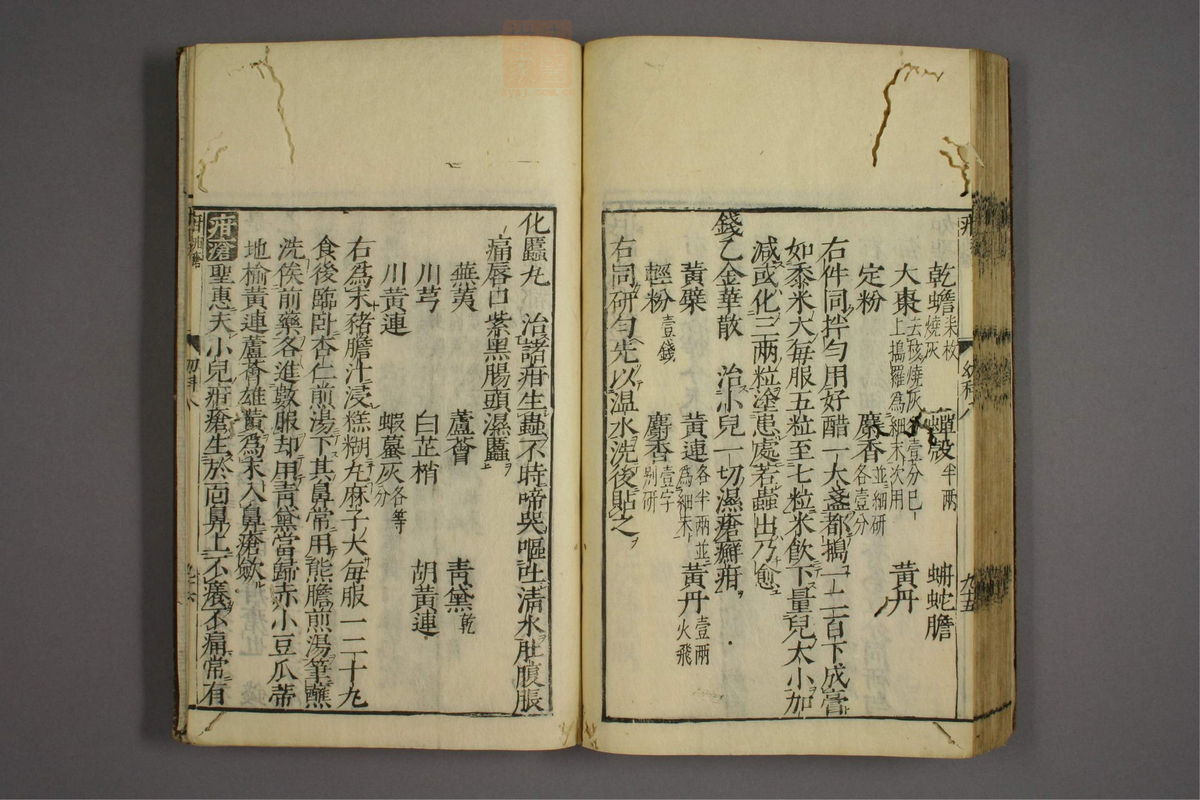 乾蟾柒枚燒灰 蟬殼半兩 蚺蛇膽
大棗去核燒灰上搗羅為細末次用各壹分巳 黃丹
定粉 麝香並細研各壹分
右件同拌勻用好醋一大盞都搗一二百下成膏
如黍米大每服五粒至七粒米飲下量兒大小加
減或化三兩粒塗患處若蟲出乃愈
錢乙金華散 治小兒一切濕瘡癬疳
黃蘗 黃連各半兩並為細末 黃丹壹兩火飛
輕粉壹錢 麝香壹字別研
右同研勻先以温水洗後貼之
化䘌丸 治諸疳生蟲不時啼哭嘔吐清水肚腹脹
痛唇口紫黑腸頭濕䘌
蕪荑 蘆薈 青黛乾
川芎 白芷梢 胡黃連
川黃連 蝦蟇灰各等分
右為末豬膽汁浸糕糊丸麻子大每服一二十丸
食後臨臥杏仁煎湯下其鼻常用熊膽煎湯筆蘸
洗俟前藥各進數服却用青黛當歸赤小豆瓜蒂
地榆黃連蘆薈雄黃為末入鼻瘡歛
疳瘡 聖惠夫小兒疳瘡生於面鼻上不癢不痛常有